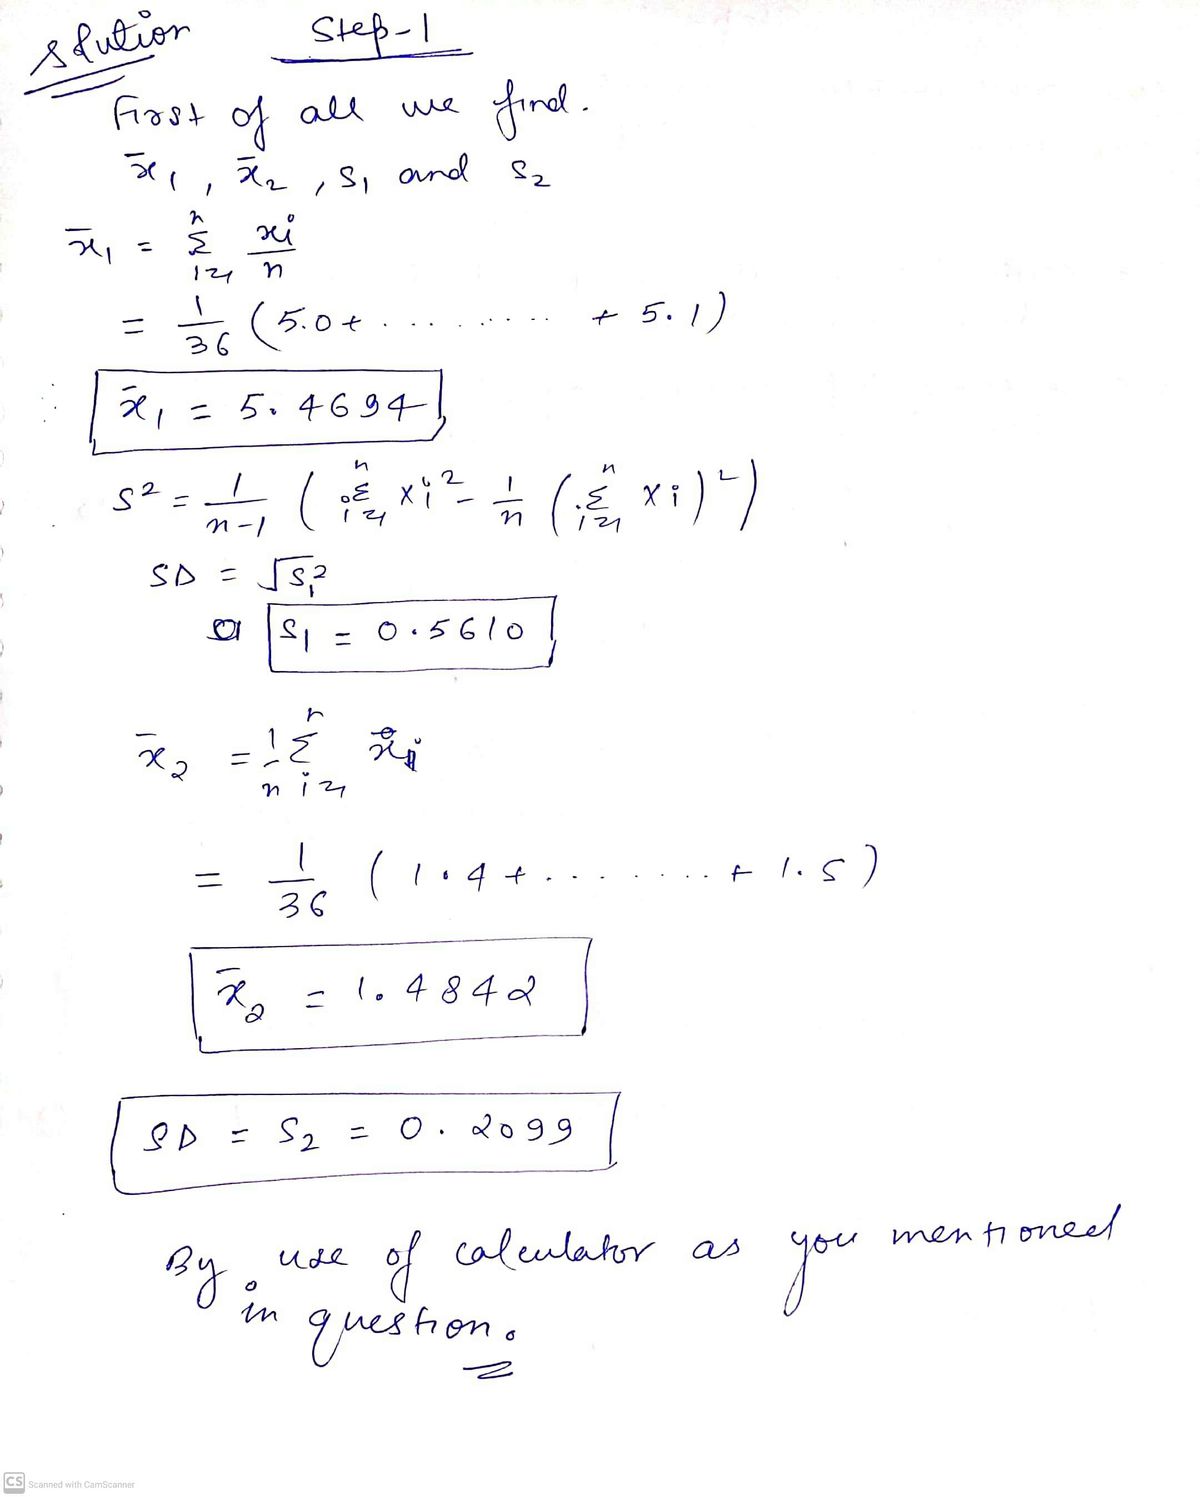 Solution Step-1
First of all we find.
x̄₁, x̄₂, s₁ and s₂
x̄₁ = Σⁿᵢ₌₁ xi/n
= 1/36 (5.0 + .......... + 5.1)
x̄₁ = 5.4694
S² = 1/(n-1) (Σⁿᵢ₌₁ xi² - 1/n (Σⁿᵢ₌₁ xi)²)
SD = √S₁²
S₁ = 0.5610
x̄₂ = 1/n Σⁿᵢ₌₁ xi
= 1/36 (1.4 + ........ + 1.5)
x̄₂ = 1.4842
SD = S₂ = 0.2099
By use of calculator as you mentioned
in question.
CS Scanned with CamScanner